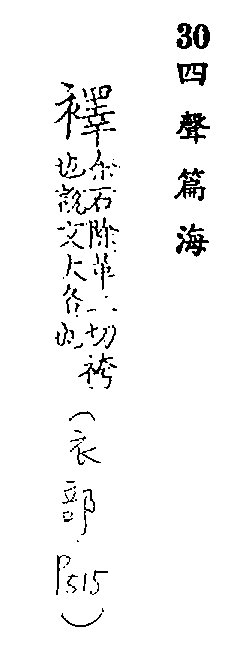 30四聲篇海
襗
余石除革二切袴
也說文大各也
(衣部P515)